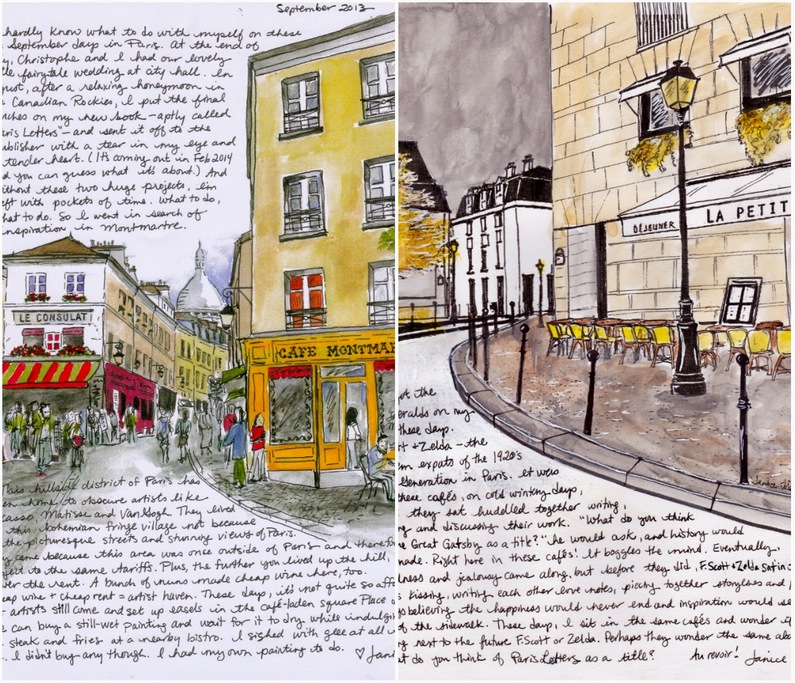 September 2013
hardly know what to do with myself on these
September days in Paris. At the end of
Christophe and I had our lovely
fairytale wedding at city hall. In
after a relaxing honeymoon in
Canadian Rockies, I put the final
on my new book - aptly called
Letters" - and sent it off to the
with a tear in my eye and
tender heart. (It's coming out in Feb 2014
you can guess what it's about.) And
these two huge projects, I'm
left with pockets of time. What to do,
what to do. So I went in search of
inspiration in Montmartre.
LE CONSULAT
CAFE MONTMAR
This hillside district of Paris has
home to obscure artists like
Matisse and Van Gogh. They lived
this bohemian fringe village not because
the picturesque streets and stunning views of Paris.
came because this area was once outside of Paris and therefor
to the same tariffs. Plus, the further you lived up the hill,
the rent. A bunch of nuns made cheap wine here, too.
wine + cheap rent = artist haven. These days, it's not quite so aff
artists still come and set up easels in the café-laden square Place
can buy a still-wet painting and wait for it to dry while indulgin
steak and frites at a nearby bistro. I sighed with glee at all
I didn't buy any though. I had my own painting to do. ♡ Jani
DÉJEUNER
LA PETIT
got the
on my
these days.
+ Zelda - the
expats of the 1920's
Generation in Paris. It was
these cafés, on cold wintry days,
they sat huddled together writing,
and discussing their work. "What do you think
Great Gatsby as a title?" he would ask, and history would
made. Right here in these cafés! It boggles the mind. Eventually,
and jealousy came along, but before they did, F. Scott + Zelda sat in
kissing, writing each other love notes, piecing together storylines and
believing the happiness would never end and inspiration would
of the sidewalk. These days, I sit in the same cafés and wonder
next to the future F. Scott or Zelda. Perhaps they wonder the same
do you think of Paris Letters as a title? Au revoir! Janice